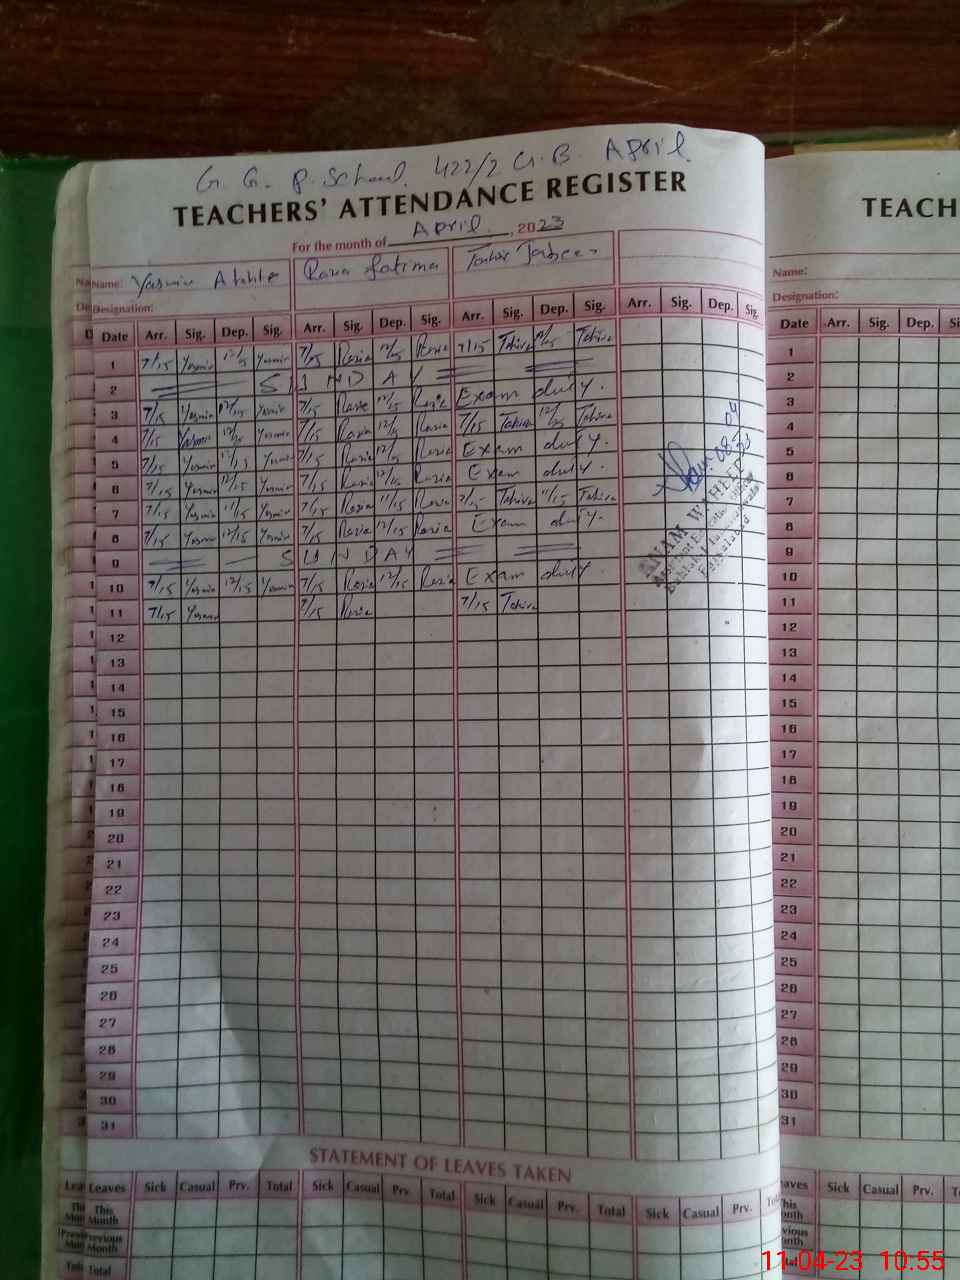 G. G. P. School. 422/2 G.B. April
TEACHERS' ATTENDANCE REGISTER
For the month of April, 2023
Name: Yasmin Razia Fatima Tahira
Designation:
Date Arr. Sig. Dep. Sig. Arr. Sig. Dep. Sig. Arr. Sig. Dep. Sig. Arr. Sig. Dep. Sig.
1 7/15 Yasmin 12/15 Yasmin 7/15 Razia 12/15 Razia 7/15 Tahira 12/15 Tahira
2 SUNDAY
3 7/15 Yasmin 12/15 Yasmin 7/15 Razia 12/15 Razia Exam duty.
4 7/15 Yasmin 12/15 Yasmin 7/15 Razia 12/15 Razia 7/15 Tahira 12/15 Tahira
5 7/15 Yasmin 12/15 Yasmin 7/15 Razia 12/15 Razia Exam duty.
6 7/15 Yasmin 12/15 Yasmin 7/15 Razia 12/15 Razia Exam duty.
7 7/15 Yasmin 11/15 Yasmin 7/15 Razia 11/15 Razia 7/15 Tahira 11/15 Tahira
8 7/15 Yasmin 12/15 Yasmin 7/15 Razia 12/15 Razia Exam duty.
9 SUNDAY
10 7/15 Yasmin 12/15 Yasmin 7/15 Razia 12/15 Razia Exam duty.
11 7/15 Yasmin 7/15 Razia 7/15 Tahira
12
13
14
15
16
17
18
19
20
21
22
23
24
25
26
27
28
29
30
31
08-04
23
Faisalabad
STATEMENT OF LEAVES TAKEN
Leaves Sick Casual Prv. Total Sick Casual Prv. Total Sick Casual Prv. Total Sick Casual Prv.
This Month
Previous Month
Total
TEACH
Name:
Designation:
Date Arr. Sig. Dep.
1
2
3
4
5
6
7
8
9
10
11
12
13
14
15
16
17
18
19
20
21
22
23
24
25
26
27
28
29
30
31
Sick Casual Prv.
11-04-23 10:55